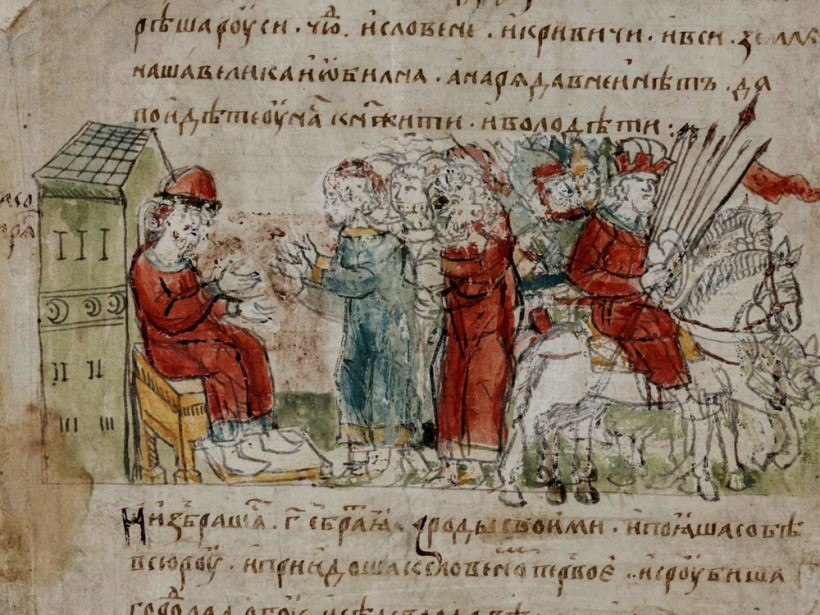 рѣша роуси · чю҃ · и словене · и кривичи · и вси · земля
наша велика и ѡбилна · а наряда в неи нѣтъ · да
поидѣте оу на кн҃жити · и володѣти :
И избрашаⷭ҇ · г҃ · е братѧ · с роды своими · и пояша собѣ
всю роу · и приидоша к словено пръвое · и сроубиша